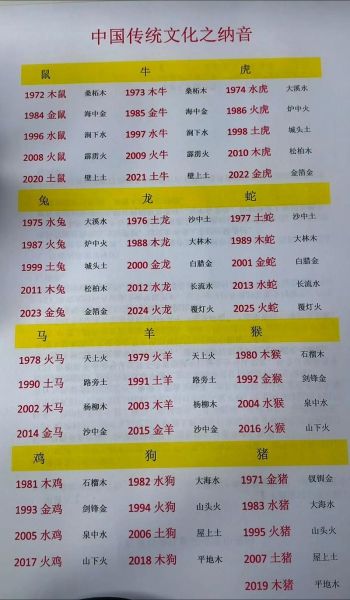 中国传统文化之纳音
鼠 牛 虎
1972 木鼠 桑柘木 1973 木牛 桑柘木 1974 水虎 大溪水
1984 金鼠 海中金 1985 金牛 海中金 1986 火虎 炉中火
1996 水鼠 涧下水 1997 水牛 涧下水 1998 土虎 城头土
2008 火鼠 霹雳火 2009 火牛 霹雳火 2010 木虎 松柏木
2020 土鼠 壁上土 2021 土牛 壁上土 2022 金虎 金箔金
兔 龙 蛇
1975 水兔 大溪水 1976 土龙 沙中土 1977 土蛇 沙中土
1987 火兔 炉中火 1988 木龙 大林木 1989 木蛇 大林木
1999 土兔 城头土 2000 金龙 白腊金 2001 金蛇 白腊金
2011 木兔 松柏木 2012 水龙 长流水 2013 水蛇 长流水
2023 金兔 金箔金 2024 火龙 覆灯火 2025 火蛇 覆灯火
马 羊 猴
1978 火马 天上火 1979 火羊 天上火 1980 木猴 石榴木
1990 土马 路旁土 1991 土羊 路旁土 1992 金猴 剑锋金
2002 木马 杨柳木 2003 木羊 杨柳木 2004 水猴 泉中水
2014 金马 沙中金 2015 金羊 沙中金 2016 火猴 山下火
鸡 狗 猪
1981 木鸡 石榴木 1982 水狗 大海水 1971 金猪 钗钏金
1993 金鸡 剑锋金 1994 火狗 山头火 1983 水猪 大海水
2005 水鸡 泉中水 2006 土狗 屋上土 1995 火猪 山头火
2017 火鸡 山下火 2018 木狗 平地木 2007 土猪 屋上土
2019 木猪 平地木